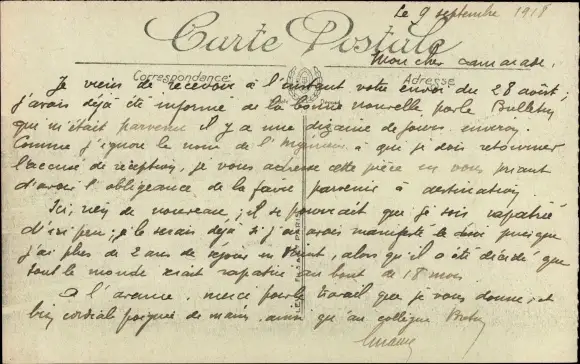 Le 9 septembre 1918
Carte Postale
Mon cher camarade,
Correspondance
Adresse
Je viens de recevoir à l'instant votre envoi du 28 août ;
j'avais déjà été informé de la bonne nouvelle par le Bulletin
qui m'était parvenu il y a une dizaine de jours environ.
Comme j'ignore le nom de l' à qui je dois retourner
l'accusé de réception, je vous adresse cette pièce en vous priant
d'avoir l'obligeance de la faire parvenir à destination
Ici, rien de nouveau ; il se pourrait que je sois rapatrié
d'ici peu ; je le serais déjà si j'en avais manifesté le désir puisque
j'ai plus de 2 ans de séjour en, alors qu'il a été décidé que
tout le monde serait rapatrié au bout de 18 mois
A l'avance, merci pour le travail que je vous donne, et
bien cordiale poignée de mains, ainsi qu'au collègue